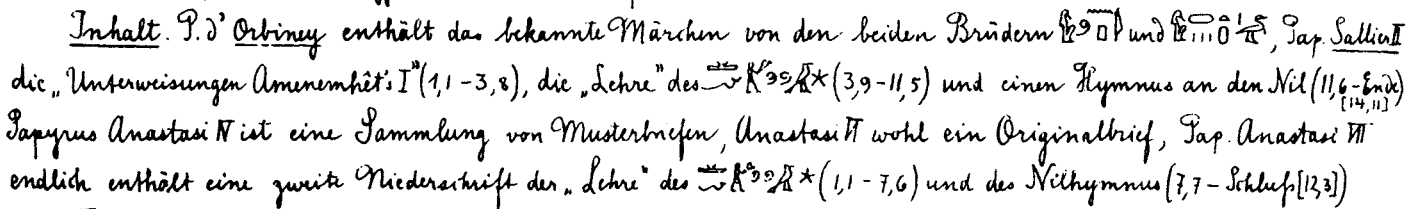 Inhalt. P. d'Orbiney enthält das bekannte Märchen von den beiden Brüdern und , Pap. Sallier II
die „Unterweisungen Amenemhêt's I" (1,1 - 3,8), die „Lehre" des (3,9 - 11,5) und einen Hymnus an den Nil (11,6 - Ende) [14,11]
Papyrus Anastasi IV ist eine Sammlung von Musterbriefen, Anastasi VI wohl ein Originalbrief, Pap. Anastasi VII
endlich enthält eine zweite Niederschrift der „Lehre" des (1,1 - 7,6) und des Nilhymnus (7,7 - Schluß [12,3])